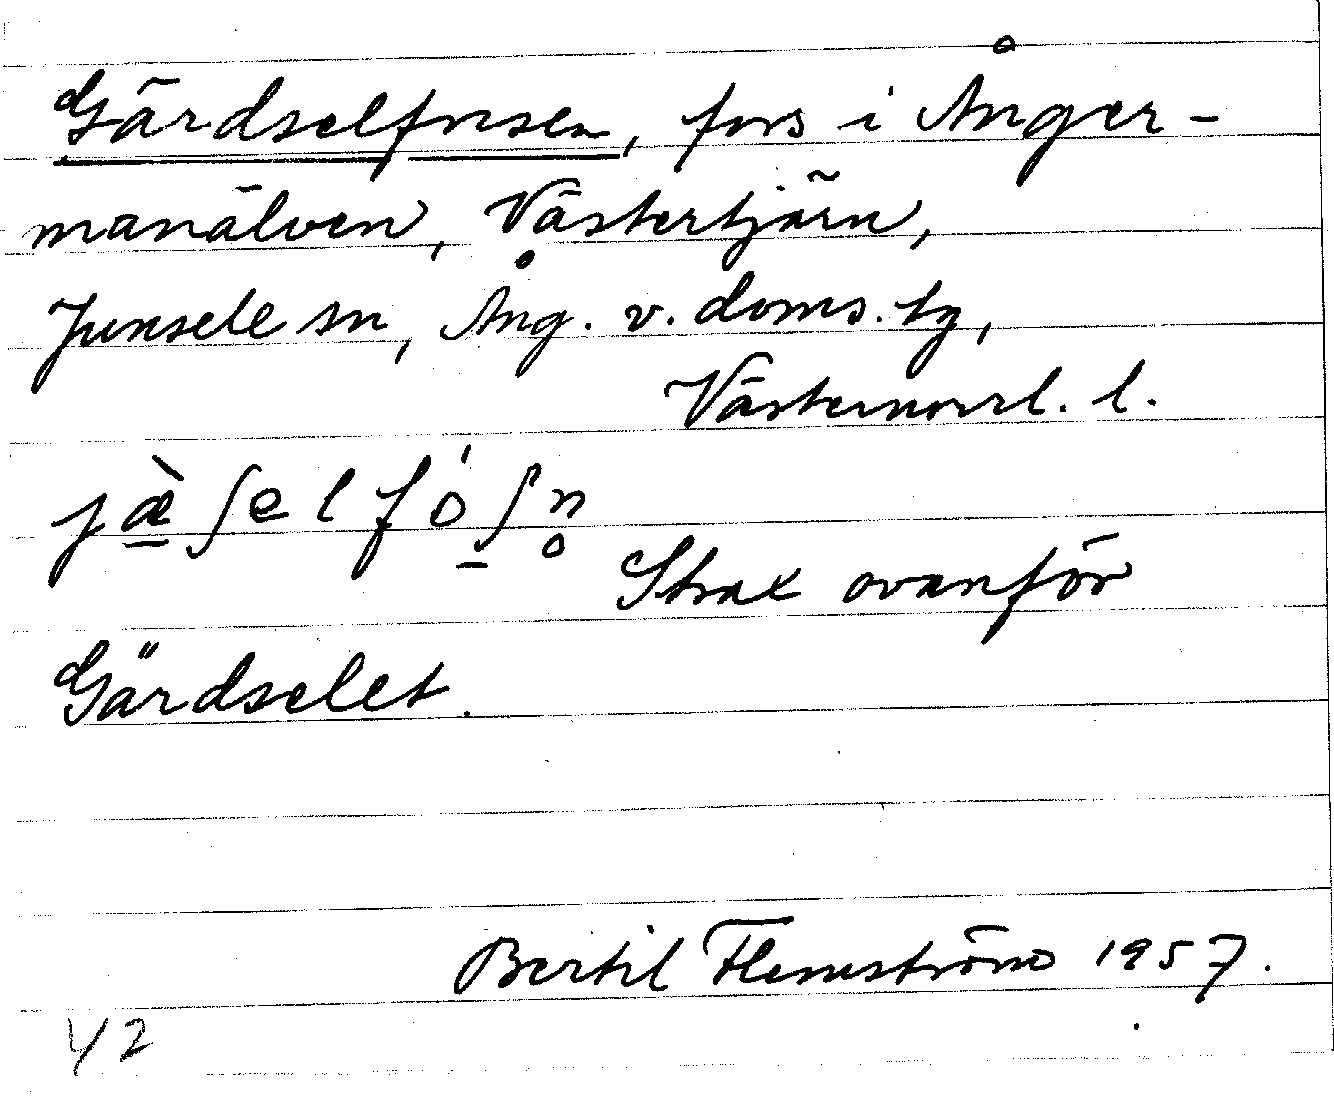 Gärdselforsen, fors i Ånger-
manälven, Västertjärn,
Junsele sn, Ång. v. doms. tg,
Västernorrl. l.
jæ̱̀ʃelfó̱ʃn̥
Strax ovanför
Gärdselet.
Bertil Flemström 1957.
42